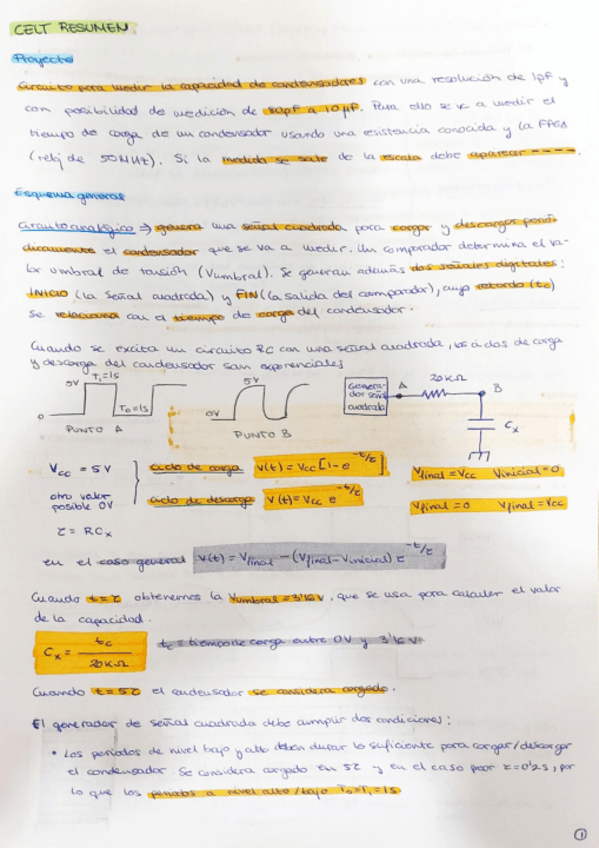 CELT RESUMEN.
Proyecto
Circuito para medir la capacidad de condensadores con una resolución de 1pF y
con posibilidad de medición de 50pF a 10μF. Para ello se va a medir el
tiempo de carga de un condensador usando una resistencia conocida y la FPGA
(reloj de 50MHz). Si la medida se sale de la escala debe aparecer ----.
Esquema general
Circuito analógico ⇒ genera una señal cuadrada para cargar y descargar perió-
dicamente el condensador que se va a medir. Un comparador determina el va-
lor umbral de tensión (Vumbral). Se generan además dos señales digitales:
INICIO (la señal cuadrada) y FIN (la salida del comparador), cuyo retardo (tc)
se relaciona con el tiempo de carga del condensador.
Cuando se excita un circuito RC con una señal cuadrada, los ciclos de carga
y descarga del condensador son exponenciales
5V T1=1s
0 T0=1s
PUNTO A
5V
0V
PUNTO B
Generador señal cuadrada
A
20KΩ
B
Cx
Vcc = 5V
otro valor posible 0V
τ = RCx
ciclo de carga v(t) = Vcc [1 - e^-t/τ] Vfinal = Vcc Vinicial = 0
ciclo de descarga v(t) = Vcc e^-t/τ Vfinal = 0 Vfinal = Vcc
en el caso general v(t) = Vfinal - (Vfinal - Vinicial) e^-t/τ
Cuando t=τ obtenemos la Vumbral = 3'16V, que se usa para calcular el valor
de la capacidad.
Cx = tc / 20KΩ tc = tiempo de carga entre 0V y 3'16V
Cuando t=5τ el condensador se considera cargado.
El generador de señal cuadrada debe cumplir dos condiciones:
• Los periodos de nivel bajo y alto deben durar lo suficiente para cargar/descargar
el condensador. Se considera cargado en 5τ y en el caso peor τ=0'2s, por
lo que los periodos a nivel alto/bajo T0=T1=1s
1